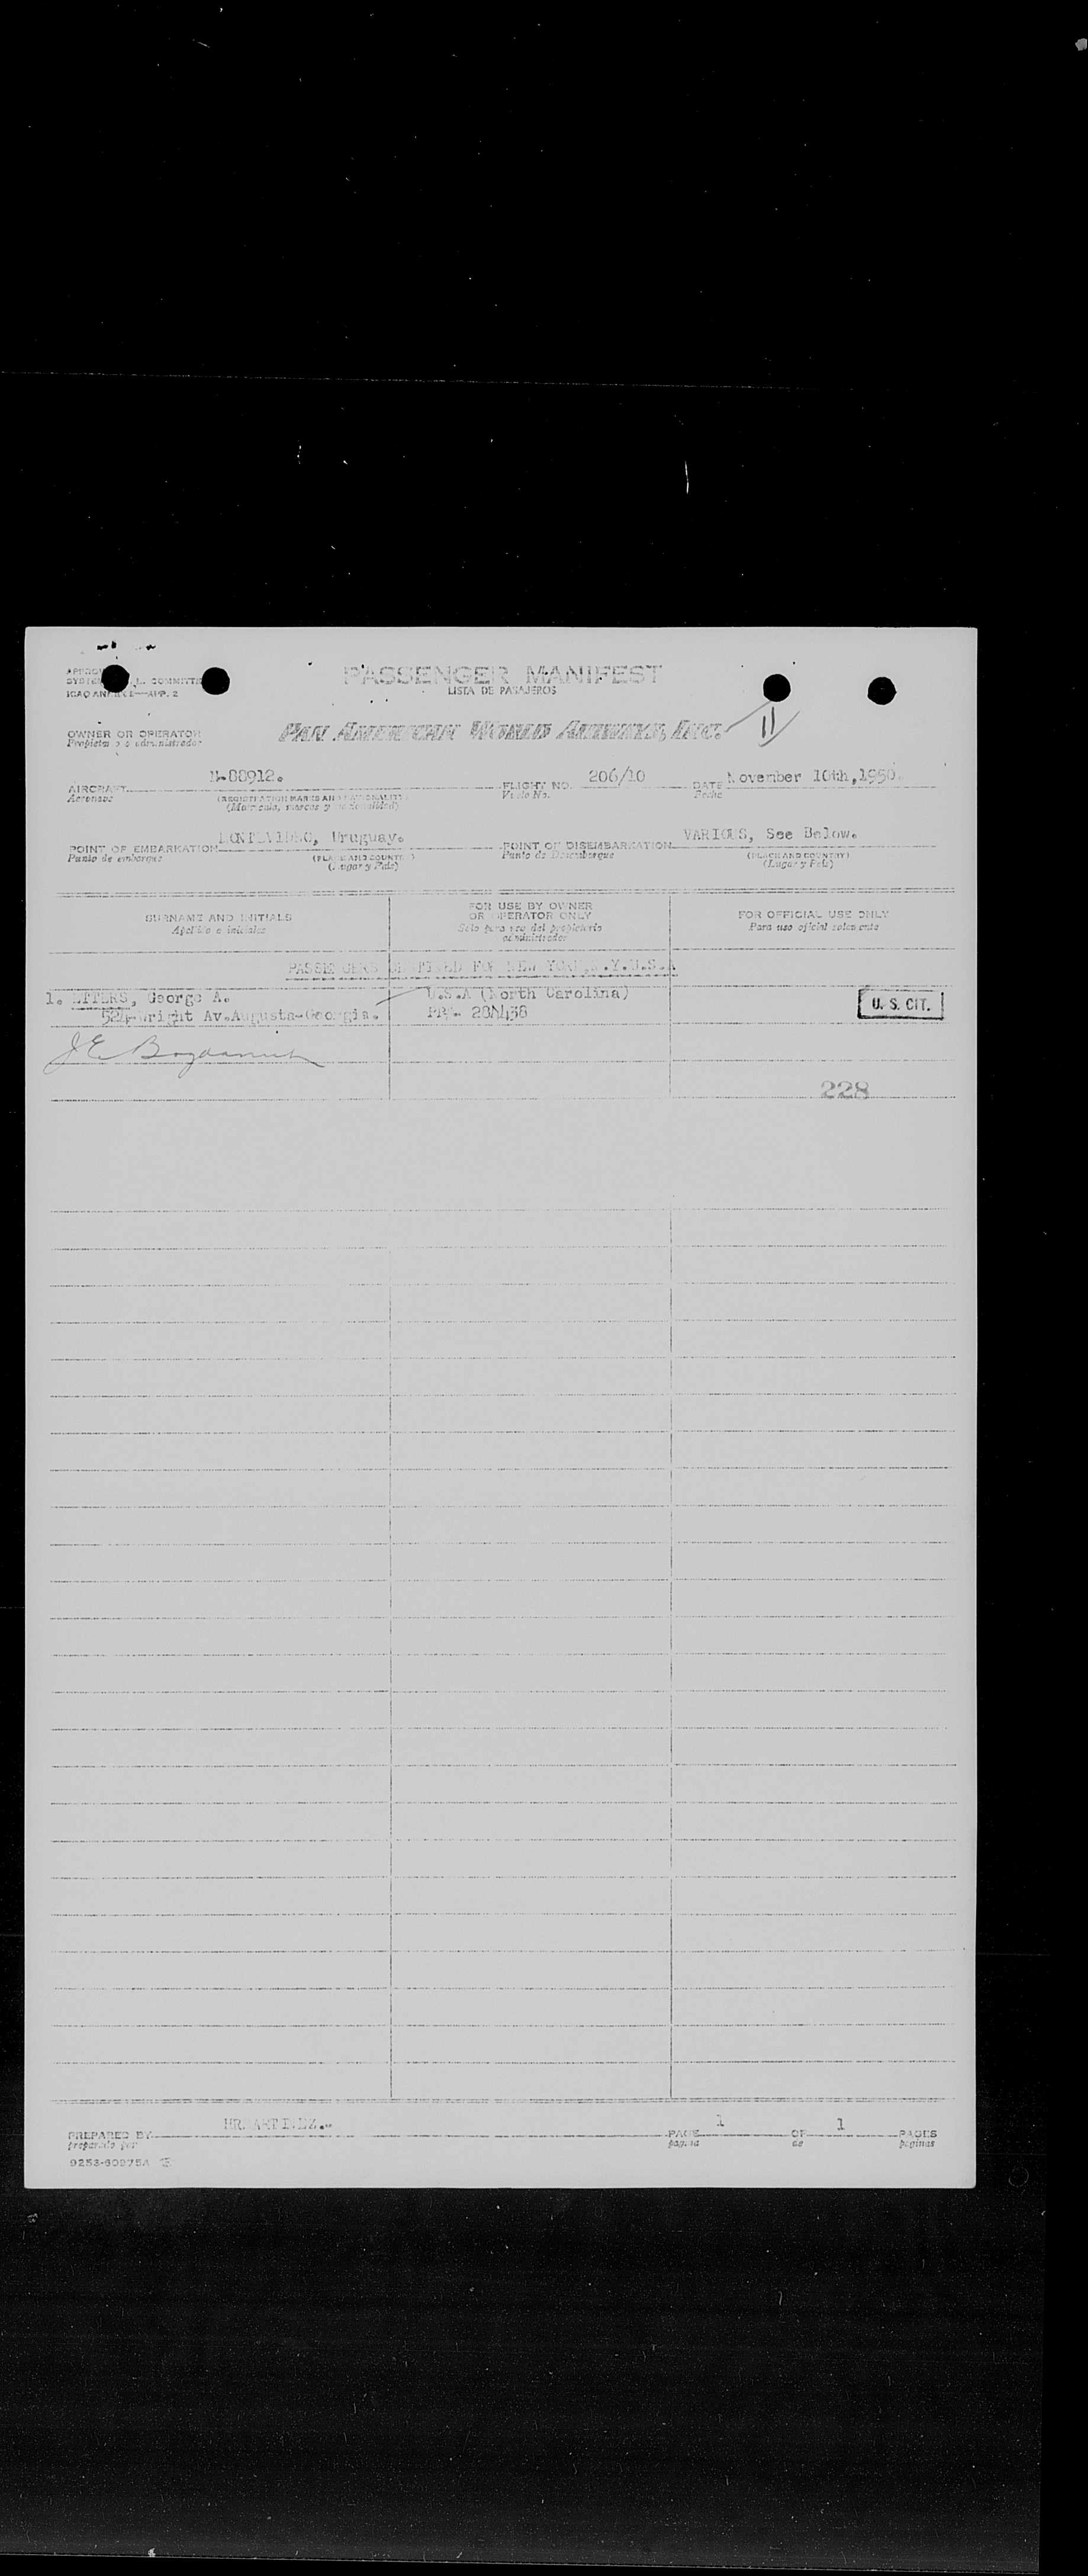 PASSENGER MANIFEST
LISTA DE PASAJEROS
ICAO ANNEX —APP. 2
11
OWNER OR OPERATOR
PAN AMERICAN WORLD AIRWAYS, INC.
AIRCRAFT N-88912.
Aeronave
(REGISTRATION MARKS AND NATIONALITY)
(Matricula, marcas y nacionalidad)
FLIGHT NO. 206/10
Vuelo No.
DATE November 10th,1950.
Fecha
POINT OF EMBARKATION MONTEVIDEO, Uruguay.
Punto de embarque
(PLACE AND COUNTRY)
(Lugar y País)
POINT OF DISEMBARKATION VARIOUS, See Below.
Punto de Desembarque
(PLACE AND COUNTRY)
(Lugar y País)
SURNAME AND INITIALS
Apellido e iniciales
FOR USE BY OWNER
OR OPERATOR ONLY
Solo para uso del propietario
administrador
FOR OFFICIAL USE ONLY
Para uso oficial solamente
PASSENGERS DESTINED FOR NEW YORK,N.Y.U.S.A
1. ETTERS, George A.
U.S.A (North Carolina)
U. S. CIT.
524-Wright Av.Augusta-Georgia.
228
PREPARED BY
preparado por
PAGE 1 OF 1 PAGES
página de páginas
9253-60975A